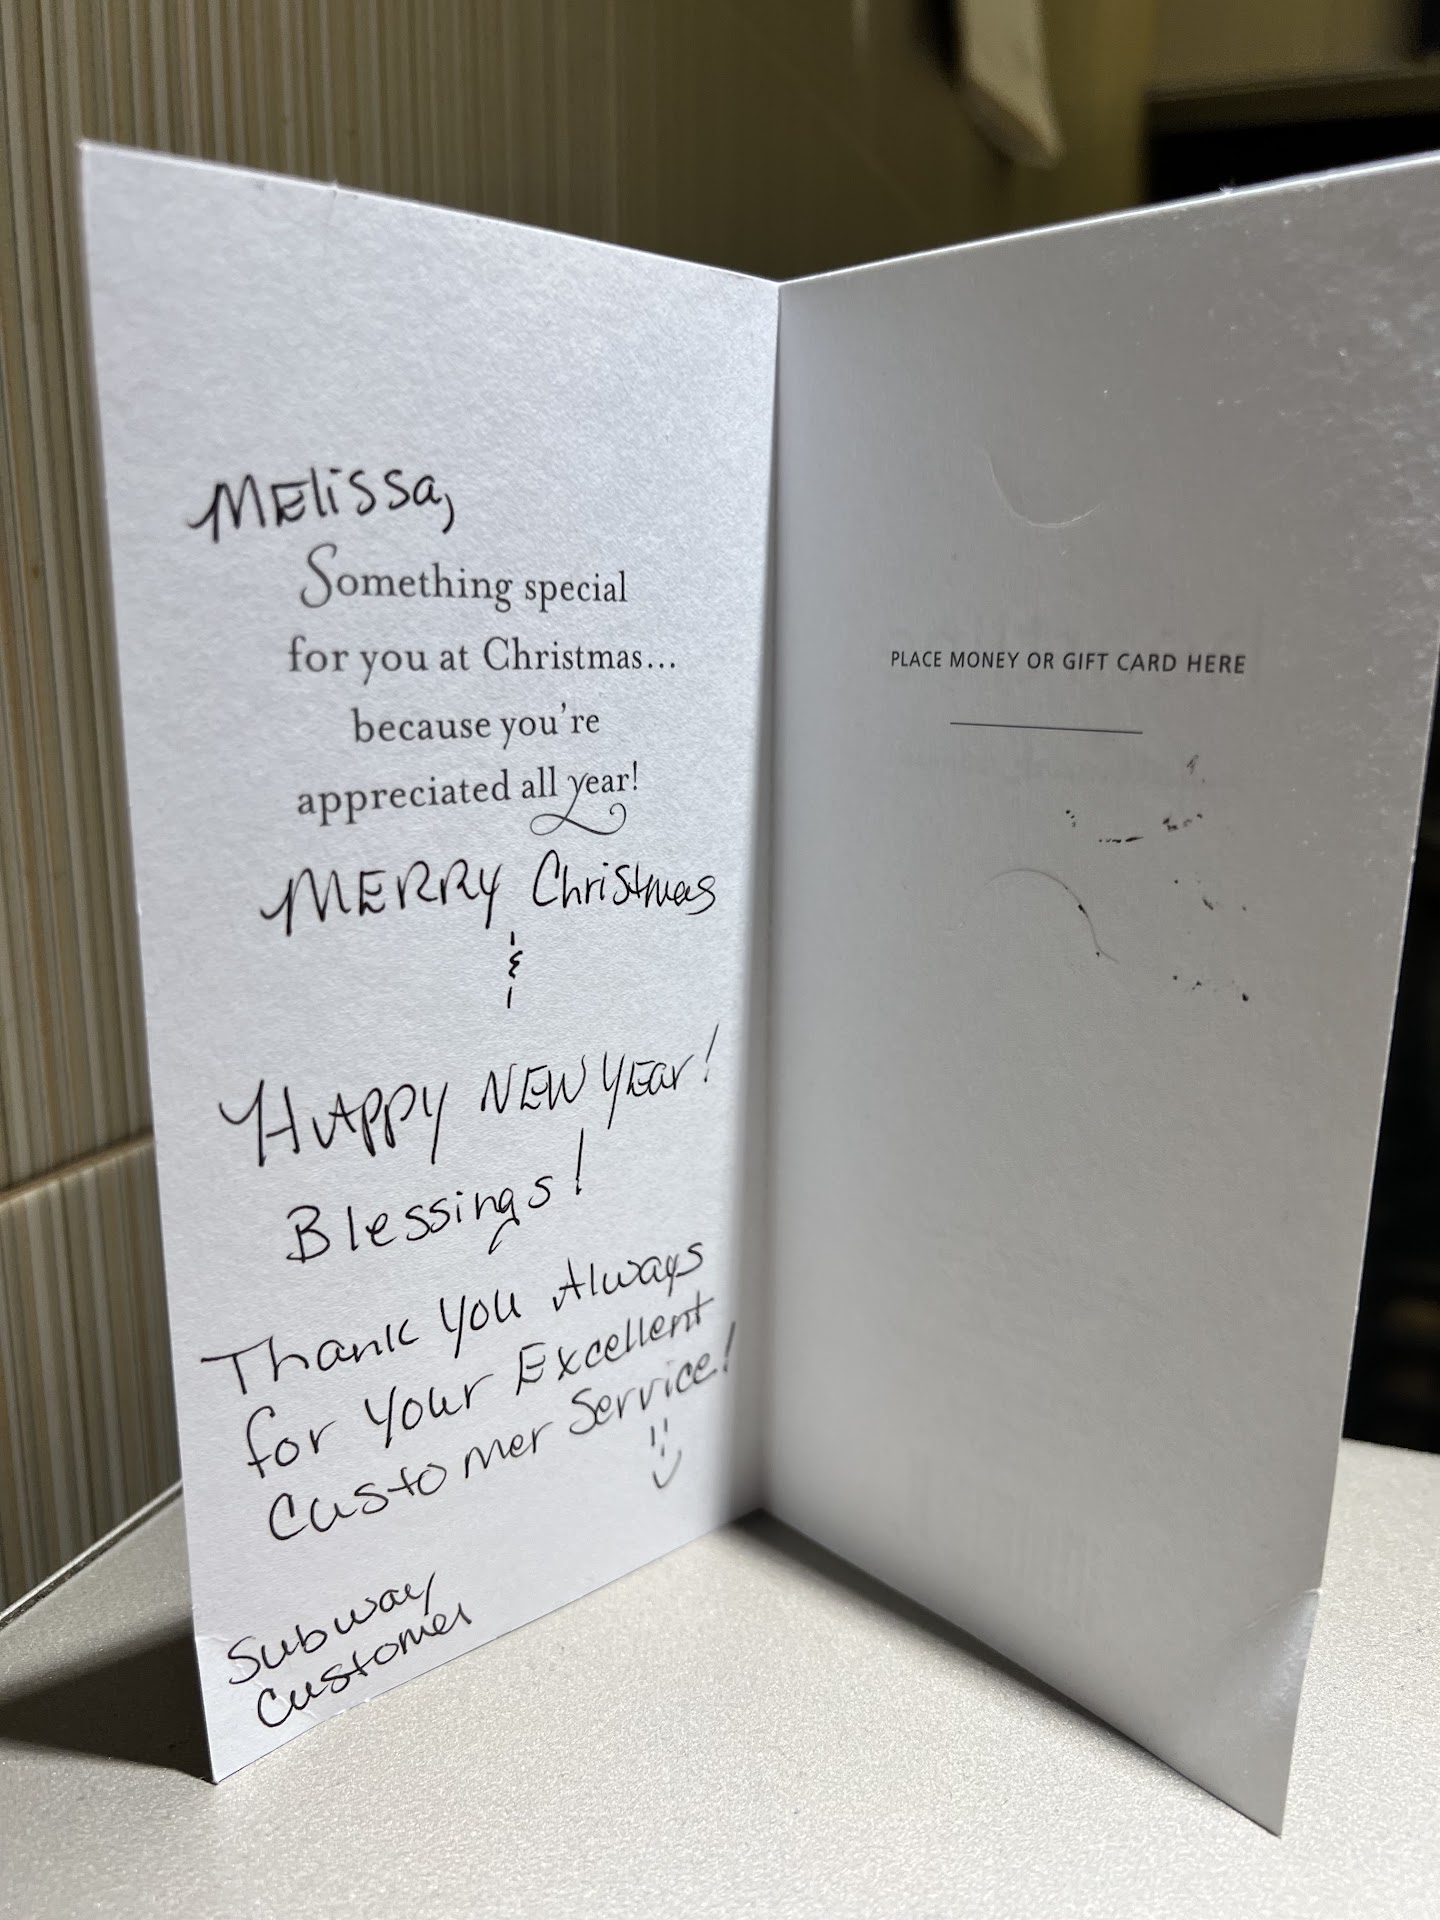 MElissa,
Something special
for you at Christmas...
because you're
appreciated all year!
MERRY Christmas
&
HAPPY NEW YEar!
Blessings!
Thank You Always
for Your Excellent
Customer Service!
Subway
Customer
PLACE MONEY OR GIFT CARD HERE